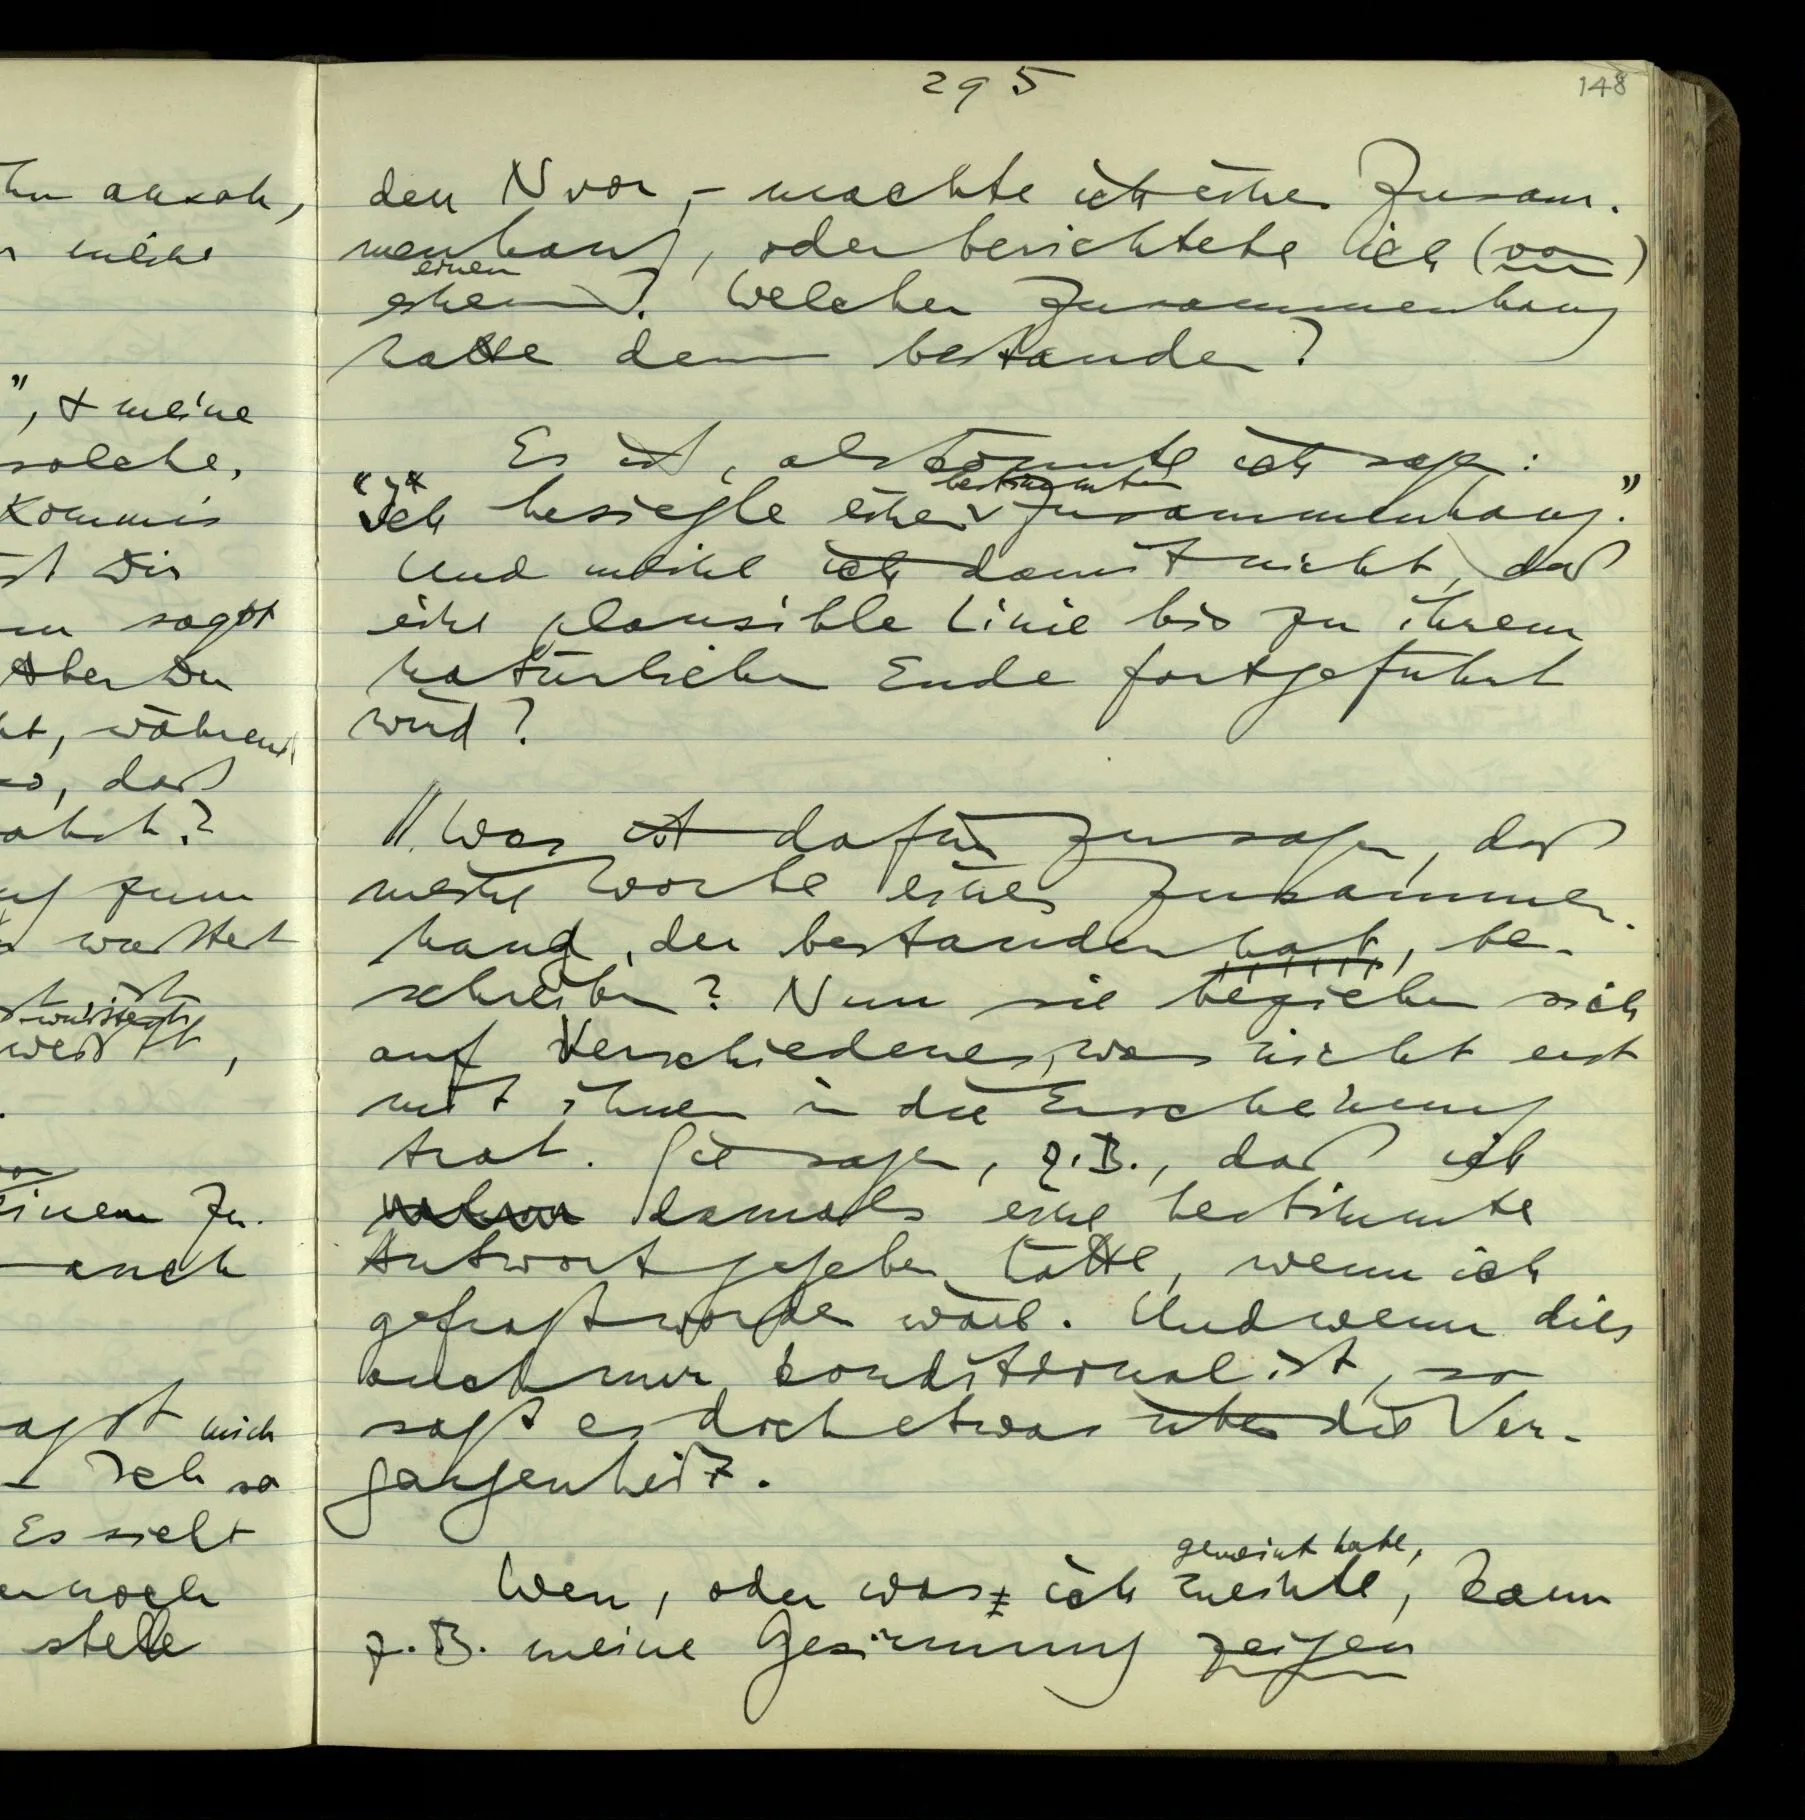 295
148
hn ansah,
meine
", + meine
solche,
Kommis
st Dir
sagst
Aber Du
ht, während
so, daß
zum
wartest
weißt,
einem Zu-
auch
agst mich
– Ich so
Es sieht
er noch
stelle
den N vor, – machte ich einen Zusam-
menhang, oder berichtete ich (von)
einen
einem? Welcher Zusammenhang
hatte denn bestanden?
Es ist, als könnte ich sagen:
bestimmten
"Ich besiegle einen Zusammenhang."
Und meine ich damit nicht, daß
eine plausible Linie bis zu ihrem
natürlichen Ende fortgeführt
wird?
// Was ist dafür zu sagen, daß
meine Worte einen Zusammen-
hang, der bestanden hat, be-
schreiben? Nun sie beziehen sich
auf Verschiedenes, was nicht erst
mit ihnen in die Erscheinung
trat. Sie sagen, z.B., daß ich
damals eine bestimmte
Antwort gegeben hätte, wenn ich
gefragt worden wäre. Und wenn dies
auch nur konditional ist, so
sagt es doch etwas über die Ver-
gangenheit.
gemeint habe,
Wen, oder was ich meinte, kann
z.B. meine Gesinnung zeigen